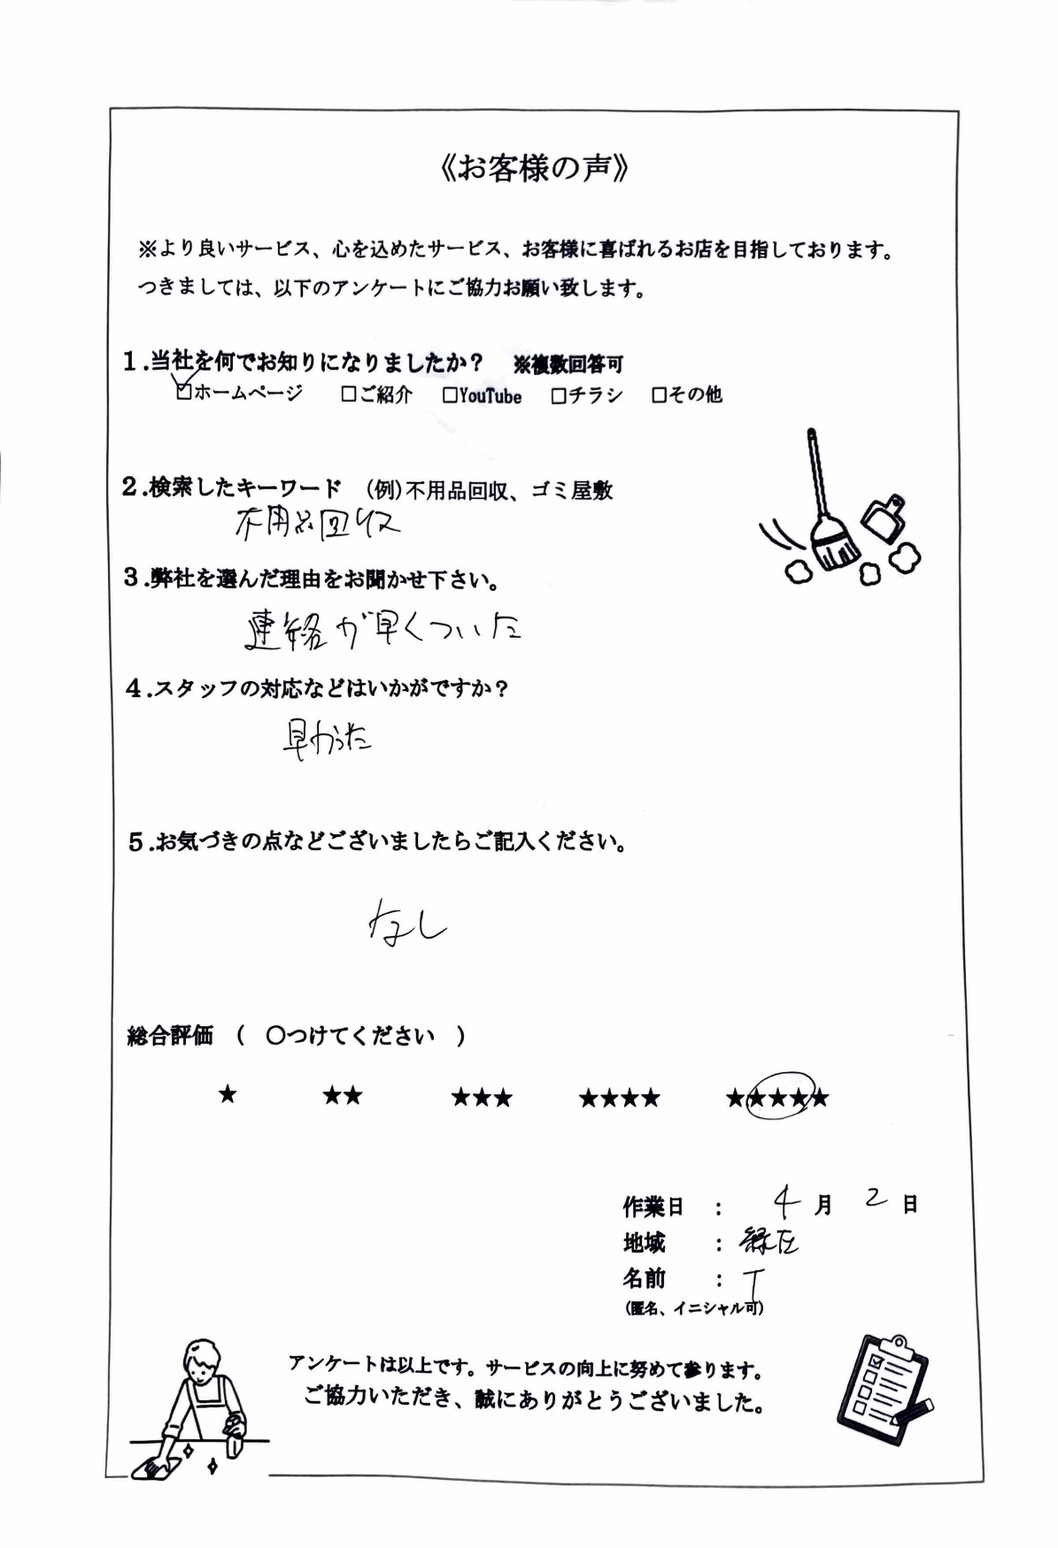 《お客様の声》
※より良いサービス、心を込めたサービス、お客様に喜ばれるお店を目指しております。
つきましては、以下のアンケートにご協力お願い致します。
1.当社を何でお知りになりましたか？　※複数回答可
☑ホームページ　□ご紹介　□YouTube　□チラシ　□その他
2.検索したキーワード　(例)不用品回収、ゴミ屋敷
不用品回収
3.弊社を選んだ理由をお聞かせ下さい。
連絡が早くついた
4.スタッフの対応などはいかがですか？
早かった
5.お気づきの点などございましたらご記入ください。
なし
総合評価　(　○つけてください　)
★　★★　★★★　★★★★　★★★★★
作業日　：　4月　2日
地域　：　緑区
名前　：　T
(匿名、イニシャル可)
アンケートは以上です。サービスの向上に努めて参ります。
ご協力いただき、誠にありがとうございました。